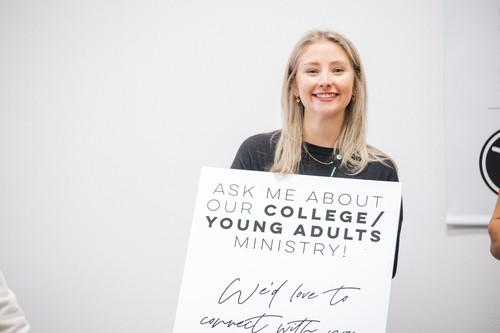 ASK ME ABOUT
OUR COLLEGE/
YOUNG ADULTS
MINISTRY!
We'd love to
connect with you